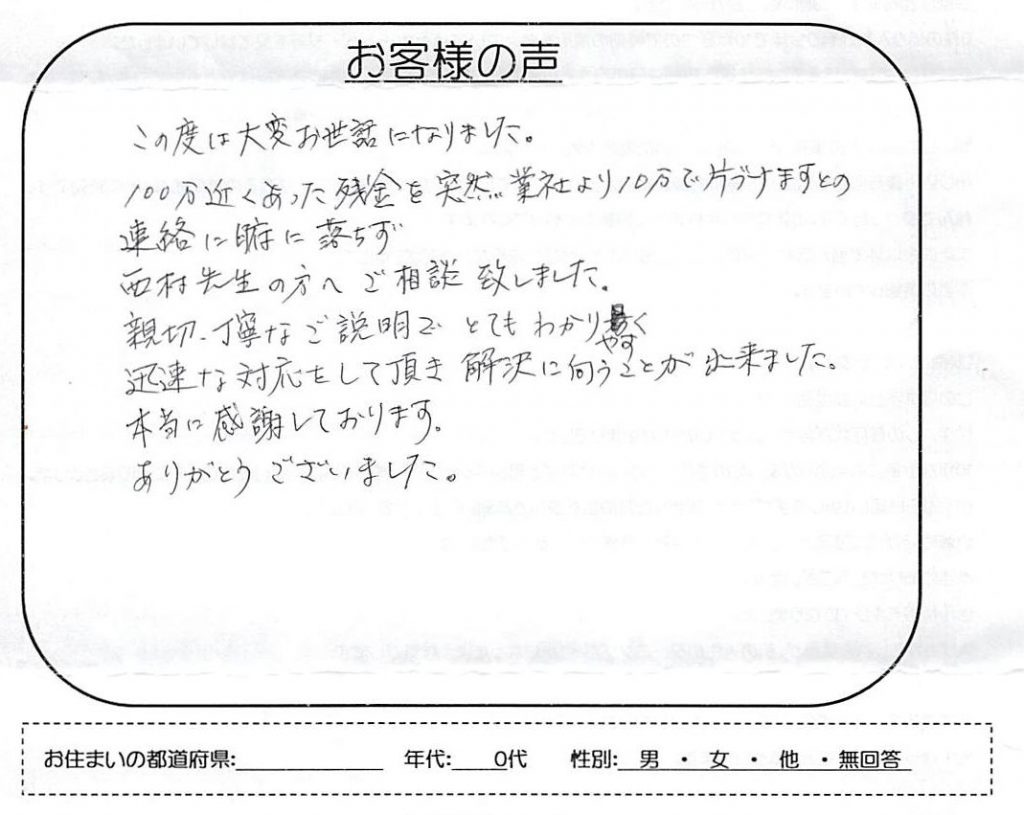 お客様の声
この度は大変お世話になりました。
100万近くあった残金を突然業社より10万で片づけますとの
連絡に腑に落ちず
西村先生の方へご相談致しました。
親切、丁寧なご説明でとてもわかりやすく
迅速な対応をして頂き解決に向うことが出来ました。
本当に感謝しております。
ありがとうございました。
お住まいの都道府県: 年代: 0代 性別: 男 ・ 女 ・ 他 ・ 無回答